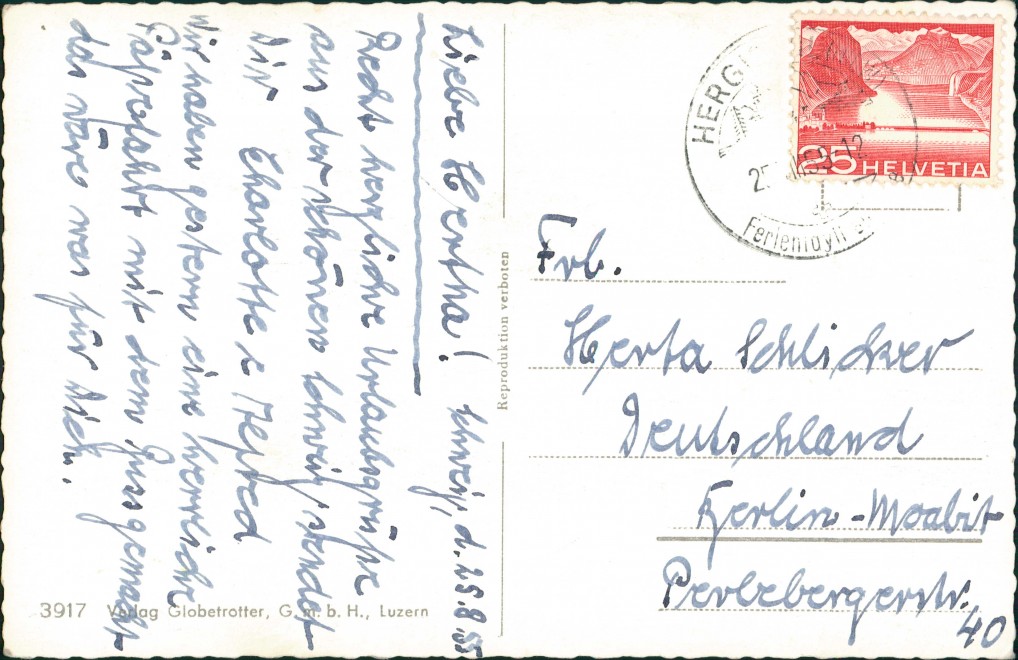 Liebe Hertha! Schweiz, d. 25.8.55
Recht herzliche Urlaubsgrüße
aus der schönen Schweiz sendet
Dir Charlotte &
Wir haben gestern eine herrliche
mit dem gemacht
das wäre was für Dich.
3917 Verlag Globetrotter, G. m. b. H., Luzern
Reproduktion verboten
HERGI
Ferienidyll
25 HELVETIA
Frl.
Herta Schlicker
Deutschland
Berlin-Moabit
Perlebergerstr.
40